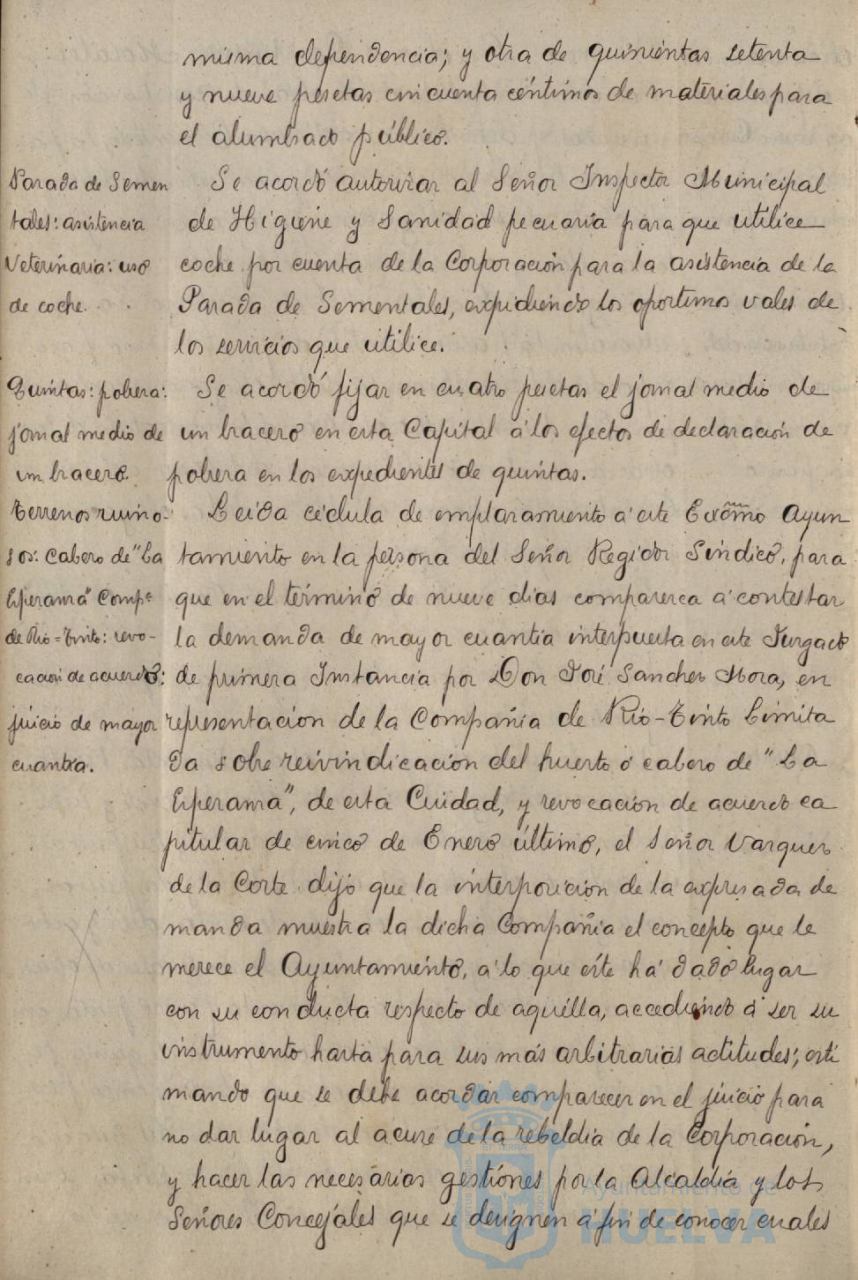 misma dependencia; y otra de quinientas setenta
y nueve pesetas cincuenta céntimos de materiales para
el alumbrado público.
Parada de Semen
tales: asistencia
Veterinaria: uso
de coche.
Se acordó autorizar al Señor Inspector Municipal
de Higiene y Sanidad pecuaria para que utilice
coche por cuenta de la Corporación para la asistencia de la
Parada de Sementales, expidiendo los oportunos vales de
los servicios que utilice.
Quintas: pobreza:
jornal medio de
un bracero.
Se acordó fijar en cuatro pesetas el jornal medio de
un bracero en esta Capital á los efectos de declaración de
pobreza en los expedientes de quintas.
Terrenos ruino-
sos: Cabezo de "La
Esperanza" Compª
de Rio-Tinto: revo-
cación de acuerdo:
juicio de mayor
cuantía.
Leida cédula de emplazamiento á este Excmo Ayun
tamiento en la persona del Señor Regidor Síndico, para
que en el término de nueve dias comparezca á contestar
la demanda de mayor cuantía interpuesta en este Juzgado
de primera Instancia por Don José Sanchez Mora, en
representación de la Compañia de Rio-Tinto Limita
da sobre reivindicación del huerto ó cabezo de "La
Esperanza", de esta Ciudad, y revocación de acuerdo ca
pitular de cinco de Enero último, el Señor Vazquez
de la Corte dijo que la interposición de la expresada de
manda muestra la dicha Compañia el concepto que le
merece el Ayuntamiento, á lo que éste há dado lugar
con su conducta respecto de aquélla, accediendo á ser su
instrumento hasta para sus más arbitrarias actitudes; esti
mando que se debe acordar comparecer en el juicio para
no dar lugar al acuse de la rebeldía de la Corporación,
y hacer las necesarias gestiones por la Alcaldía y los
Señores Concejales que se designen á fin de conocer cuales
Ayuntamiento de
HUELVA